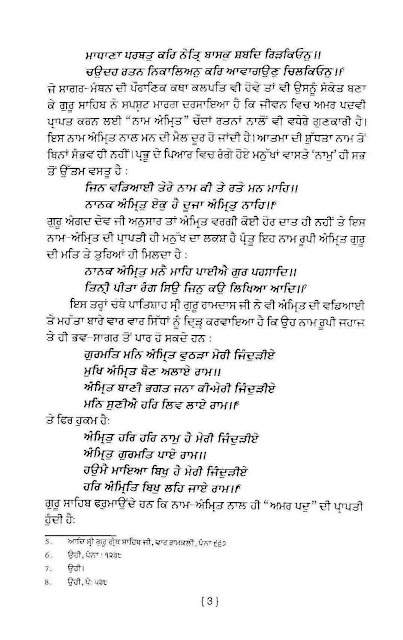 ਮਾਧਾਣਾ ਪਰਬਤੁ ਕਰਿ ਨੇਤ੍ਰਿ ਬਾਸਕੁ ਸ਼ਬਦਿ ਰਿੜਕਿਓਨੁ॥
ਚਉਦਹ ਰਤਨ ਨਿਕਾਲਿਅਨੁ ਕਰਿ ਆਵਾਗਉਣੁ ਚਿਲਕਿਓਨੁ॥⁵
ਜੇ ਸਾਗਰ-ਮੰਥਨ ਦੀ ਪੌਰਾਣਿਕ ਕਥਾ ਕਲਪਤਿ ਵੀ ਹੋਵੇ ਤਾਂ ਵੀ ਉਸਨੂੰ ਸੰਕੇਤ ਬਣਾ
ਕੇ ਗੁਰੂ ਸਾਹਿਬ ਨੇ ਸਪਸ਼ਟ ਮਾਰਗ ਦਰਸਾਇਆ ਹੈ ਕਿ ਜੀਵਨ ਵਿਚ ਅਮਰ ਪਦਵੀ
ਪ੍ਰਾਪਤ ਕਰਨ ਲਈ "ਨਾਮ ਅੰਮ੍ਰਿਤ" ਚੌਦਾਂ ਰਤਨਾਂ ਨਾਲੋਂ ਵੀ ਵਧੇਰੇ ਗੁਣਕਾਰੀ ਹੈ।
ਇਸ ਨਾਮ ਅੰਮ੍ਰਿਤ ਨਾਲ ਮਨ ਦੀ ਮੈਲ ਦੂਰ ਹੋ ਜਾਂਦੀ ਹੈ। ਆਤਮਾ ਦੀ ਸ਼ੁੱਧਤਾ ਨਾਮ ਤੋਂ
ਬਿਨਾਂ ਸੰਭਵ ਹੀ ਨਹੀਂ। ਪ੍ਰਭੂ ਦੇ ਪਿਆਰ ਵਿਚ ਰੰਗੇ ਹੋਏ ਮਨੁੱਖਾਂ ਵਾਸਤੇ 'ਨਾਮੁ' ਹੀ ਸਭ
ਤੋਂ ਉੱਤਮ ਵਸਤੁ ਹੈ :
ਜਿਨ ਵਡਿਆਈ ਤੇਰੇ ਨਾਮ ਕੀ ਤੇ ਰਤੇ ਮਨ ਮਾਹਿ॥
ਨਾਨਕ ਅੰਮ੍ਰਿਤੁ ਏਕੁ ਹੈ ਦੂਜਾ ਅੰਮ੍ਰਿਤੁ ਨਾਹਿ॥⁶
ਗੁਰੂ ਅੰਗਦ ਦੇਵ ਜੀ ਅਨੁਸਾਰ ਤਾਂ ਅੰਮ੍ਰਿਤ ਵਰਗੀ ਕੋਈ ਹੋਰ ਦਾਤ ਹੀ ਨਹੀਂ ਤੇ ਇਸ
ਨਾਮ-ਅੰਮ੍ਰਿਤ ਦੀ ਪ੍ਰਾਪਤੀ ਹੀ ਮਨੁੱਖ ਦਾ ਲਕਸ਼ ਹੈ ਪ੍ਰੰਤੂ ਇਹ ਨਾਮ ਰੂਪੀ ਅੰਮ੍ਰਿਤ ਗੁਰੂ
ਦੀ ਮਤਿ ਤੇ ਤੁਰਿਆਂ ਹੀ ਮਿਲਦਾ ਹੈ :
ਨਾਨਕ ਅੰਮ੍ਰਿਤੁ ਮਨੈ ਮਾਹਿ ਪਾਈਐ ਗੁਰ ਪਰਸਾਦਿ॥
ਤਿਨ੍ਹੀ ਪੀਤਾ ਰੰਗ ਸਿਉ ਜਿਨ੍ਹ ਕਉ ਲਿਖਿਆ ਆਦਿ॥⁷
ਇਸ ਤਰ੍ਹਾਂ ਚੌਥੇ ਪਾਤਿਸ਼ਾਹ ਸ੍ਰੀ ਗੁਰੂ ਰਾਮਦਾਸ ਜੀ ਨੇ ਵੀ ਅੰਮ੍ਰਿਤ ਦੀ ਵਡਿਆਈ
ਤੇ ਮਹੱਤਾ ਬਾਰੇ ਵਾਰ ਵਾਰ ਸਿੱਧਾਂ ਨੂੰ ਦ੍ਰਿੜ੍ਹ ਕਰਵਾਇਆ ਹੈ ਕਿ ਉਹ ਨਾਮ ਰੂਪੀ ਜਹਾਜ਼
ਤੇ ਹੀ ਭਵ-ਸਾਗਰ ਤੋਂ ਪਾਰ ਹੋ ਸਕਦੇ ਹਨ :
ਗੁਰਮਤਿ ਮਨਿ ਅੰਮ੍ਰਿਤ ਵੁਠੜਾ ਮੇਰੀ ਜਿੰਦੁੜੀਏ
ਮੁਖਿ ਅੰਮ੍ਰਿਤ ਬੈਣ ਅਲਾਏ ਰਾਮ॥
ਅੰਮ੍ਰਿਤ ਬਾਣੀ ਭਗਤ ਜਨਾ ਕੀ ਮੇਰੀ ਜਿੰਦੁੜੀਏ
ਮਨਿ ਸੁਣੀਐ ਹਰਿ ਲਿਵ ਲਾਏ ਰਾਮ॥⁸
ਤੇ ਫਿਰ ਹੁਕਮ ਹੈ:
ਅੰਮ੍ਰਿਤੁ ਹਰਿ ਹਰਿ ਨਾਮੁ ਹੈ ਮੇਰੀ ਜਿੰਦੁੜੀਏ
ਅੰਮ੍ਰਿਤੁ ਗੁਰਮਤਿ ਪਾਏ ਰਾਮ॥
ਹਉਮੈ ਮਾਇਆ ਬਿਖੁ ਹੈ ਮੇਰੀ ਜਿੰਦੁੜੀਏ
ਹਰਿ ਅੰਮ੍ਰਿਤਿ ਬਿਖੁ ਲਹਿ ਜਾਏ ਰਾਮ॥⁹
ਗੁਰੂ ਸਾਹਿਬ ਫਰੁਮਾਉਂਦੇ ਹਨ ਕਿ ਨਾਮ-ਅੰਮ੍ਰਿਤ ਨਾਲ ਹੀ "ਅਮਰ ਪਦੁ" ਦੀ ਪ੍ਰਾਪਤੀ
ਹੁੰਦੀ ਹੈ:
5. ਆਦਿ ਸ੍ਰੀ ਗੁਰੂ ਗ੍ਰੰਥ ਸਾਹਿਬ ਜੀ, ਵਾਰ ਰਾਮਕਲੀ, ਪੰਨਾ ੯੬੭
6. ਉਹੀ, ਪੰਨਾ : ੧੨੩੮
7. ਉਹੀ।
8. ਉਹੀ, ਪੰ: ੫੩੮
{ 3 }